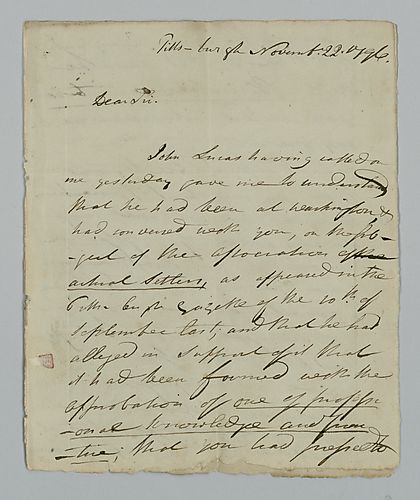 Pitts-burgh Novemb. 22. 1796.
Dear Sir.
John Lucas having called on
me yesterday gave me to understand
that he had been at washington &
had convered with you, on the sub-
-ject of the association of the
actual Setlers, as appeared in the
Pitts burgh gazette of the 10th of
September last; and that he had
alleged in support of it that
it had been formed with the
approbation of one of profess
-onal knowledge and prac
-tice; that you had